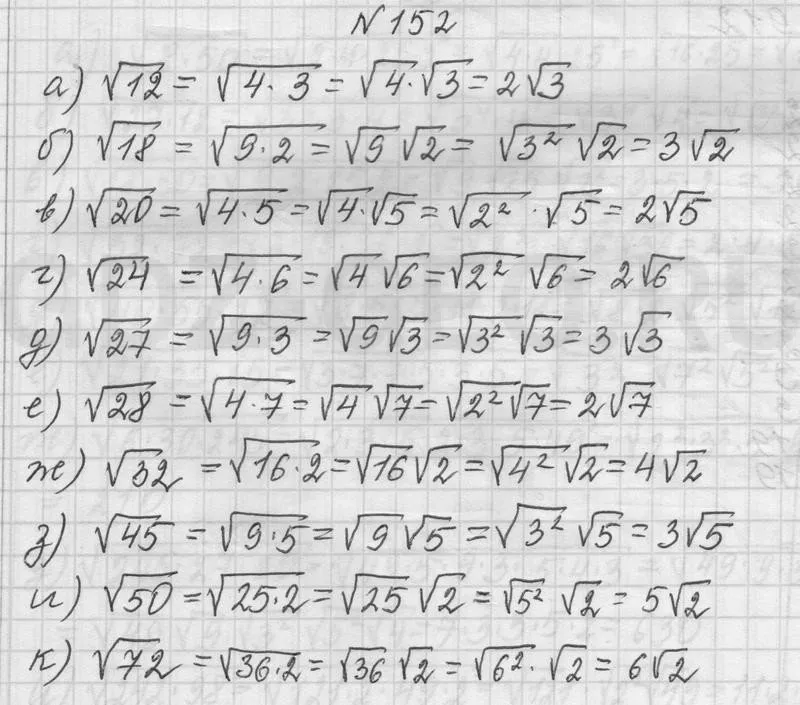 N 152
а) √12 = √4·3 = √4·√3 = 2√3
б) √18 = √9·2 = √9 √2 = √3² √2 = 3√2
в) √20 = √4·5 = √4·√5 = √2²·√5 = 2√5
г) √24 = √4·6 = √4 √6 = √2² √6 = 2√6
д) √27 = √9·3 = √9 √3 = √3² √3 = 3√3
е) √28 = √4·7 = √4 √7 = √2² √7 = 2√7
ж) √32 = √16·2 = √16 √2 = √4² √2 = 4√2
з) √45 = √9·5 = √9 √5 = √3² √5 = 3√5
и) √50 = √25·2 = √25 √2 = √5² √2 = 5√2
к) √72 = √36·2 = √36 √2 = √6²·√2 = 6√2